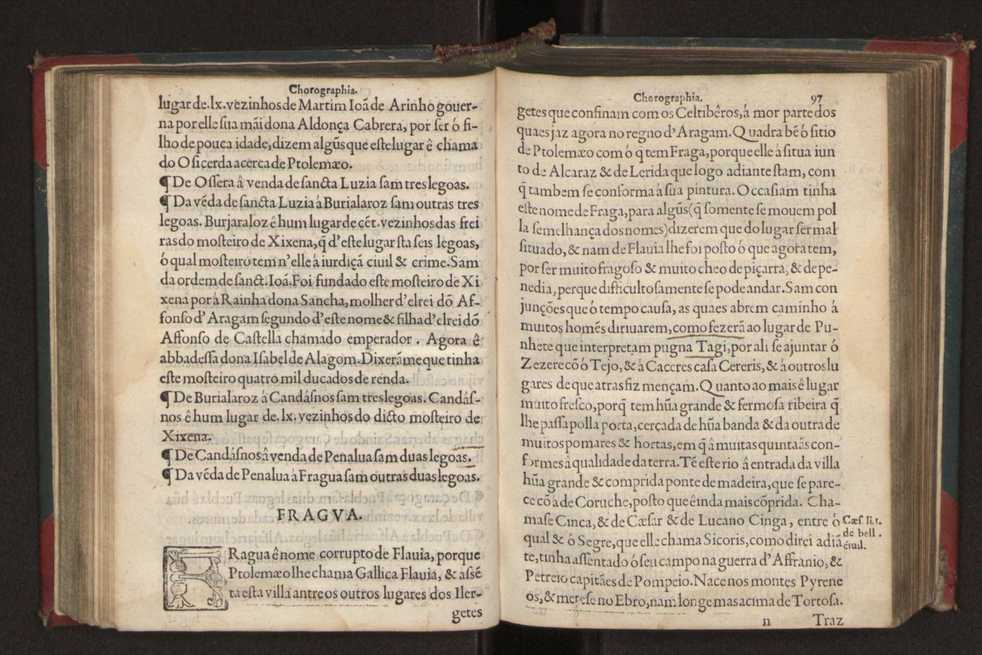 Chorographia.
lugar de.lx.vezinhos de Martim Ioã de Arinho gouer-
na por elle sua mãi dona Aldonça Cabrera, por ser ó fi-
lho de pouca idade, dizem algũs que este lugar ê chama
do Osicerda acerca de Ptolemæo.
¶ De Ossera â venda de sancta Luzia sam tres legoas.
¶ Da vẽda de sancta Luzia à Burialaroz sam outras tres
legoas. Burjaraloz ê hum lugar de cẽt. vezinhos das frei
ras do mosteiro de Xixena, q̃ d'este lugar sta seis legoas,
ó qual mosteiro tem n'elle à iurdiçã ciuil & crime. Sam
da ordem de sanct. Ioã. Foi fundado este mosteiro de Xi
xena por à Rainha dona Sancha, molher d'elrei dõ Af-
fonso d'Aragam segundo d'este nome & filha d'elrei dõ
Affonso de Castella chamado emperador. Agora ê
abbadessa dona Isabel de Alagom. Dixerãme que tinha
este mosteiro quatro mil ducados de renda.
¶ De Burialaroz à Candásnos sam tres legoas. Candás-
nos ê hum lugar de.lx. vezinhos do dicto mosteiro de
Xixena.
¶ De Candásnos â venda de Penalua sam duas legoas.
¶ Da vẽda de Penalua à Fragua sam outras duas legoas.
FRAGVA.
FRagua ê nome corrupto de Flauia, porque
Ptolemæo lhe chama Gallica Flauia, & assẽ
ta esta villa antre os outros lugares dos Iler-
getes
Chorographia. 97
getes que confinam com os Celtibêros, á mor parte dos
quaes jaz agóra no regno d'Aragam. Quadra bẽ ó sitio
de Ptolemæo com ó q̃ tem Fraga, porque elle à situa iun
to de Alcaraz & de Lerida que logo adiante stam, com
q̃ tambem se conforma à sua pintura. Occasiam tinha
este nome de Fraga, para algũs (q̃ somente se mouem pol
la semelhança dos nomes) dizerem que do lugar ser mal
situado, & nam de Flauia lhe foi posto ó que agora tem,
por ser muito fragoso & muito cheo de piçarra, & de pe-
nedia, perque difficultosamente se pode andar. Sam con
junções que ó tempo causa, as quaes abrem caminho á
muitos homẽs diriuarem, como fezerã ao lugar de Pu-
nhete que interpretam pugna Tagi, por ali se ajuntar ó
Zezere cõ ó Tejo, & á Caceres casa Cereris, & à outros lu
gares de que atras fiz mençam. Quanto ao mais ê lugar
muito fresco, porq̃ tem hũa grande & fermosa ribeira q̃
lhe passa polla porta, cerçada de hũa banda & da outra de
muitos pomares & hortas, em q̃ â muitas quintaãs con-
formes à qualidade da terra. Tẽ este rio â entrada da villa
hũa grande & comprida ponte de madeira, que se pare-
ce cõ à de Coruche, posto que ê inda mais cõprida. Cha-
mase Cinca, & de Cæsar & de Lucano Cinga, entre ó
qual & ó Segre, que elle chama Sicoris, como direi adiã
te, tinha assentado ó seu campo na guerra d'Affranio, &
Petreio capitães de Pompeio. Nace nos montes Pyrene
os, & mete se no Ebro, nam longe mas acima de Tortosa.
Cæs. li. 1.
de bell.
ciuil.
n Traz